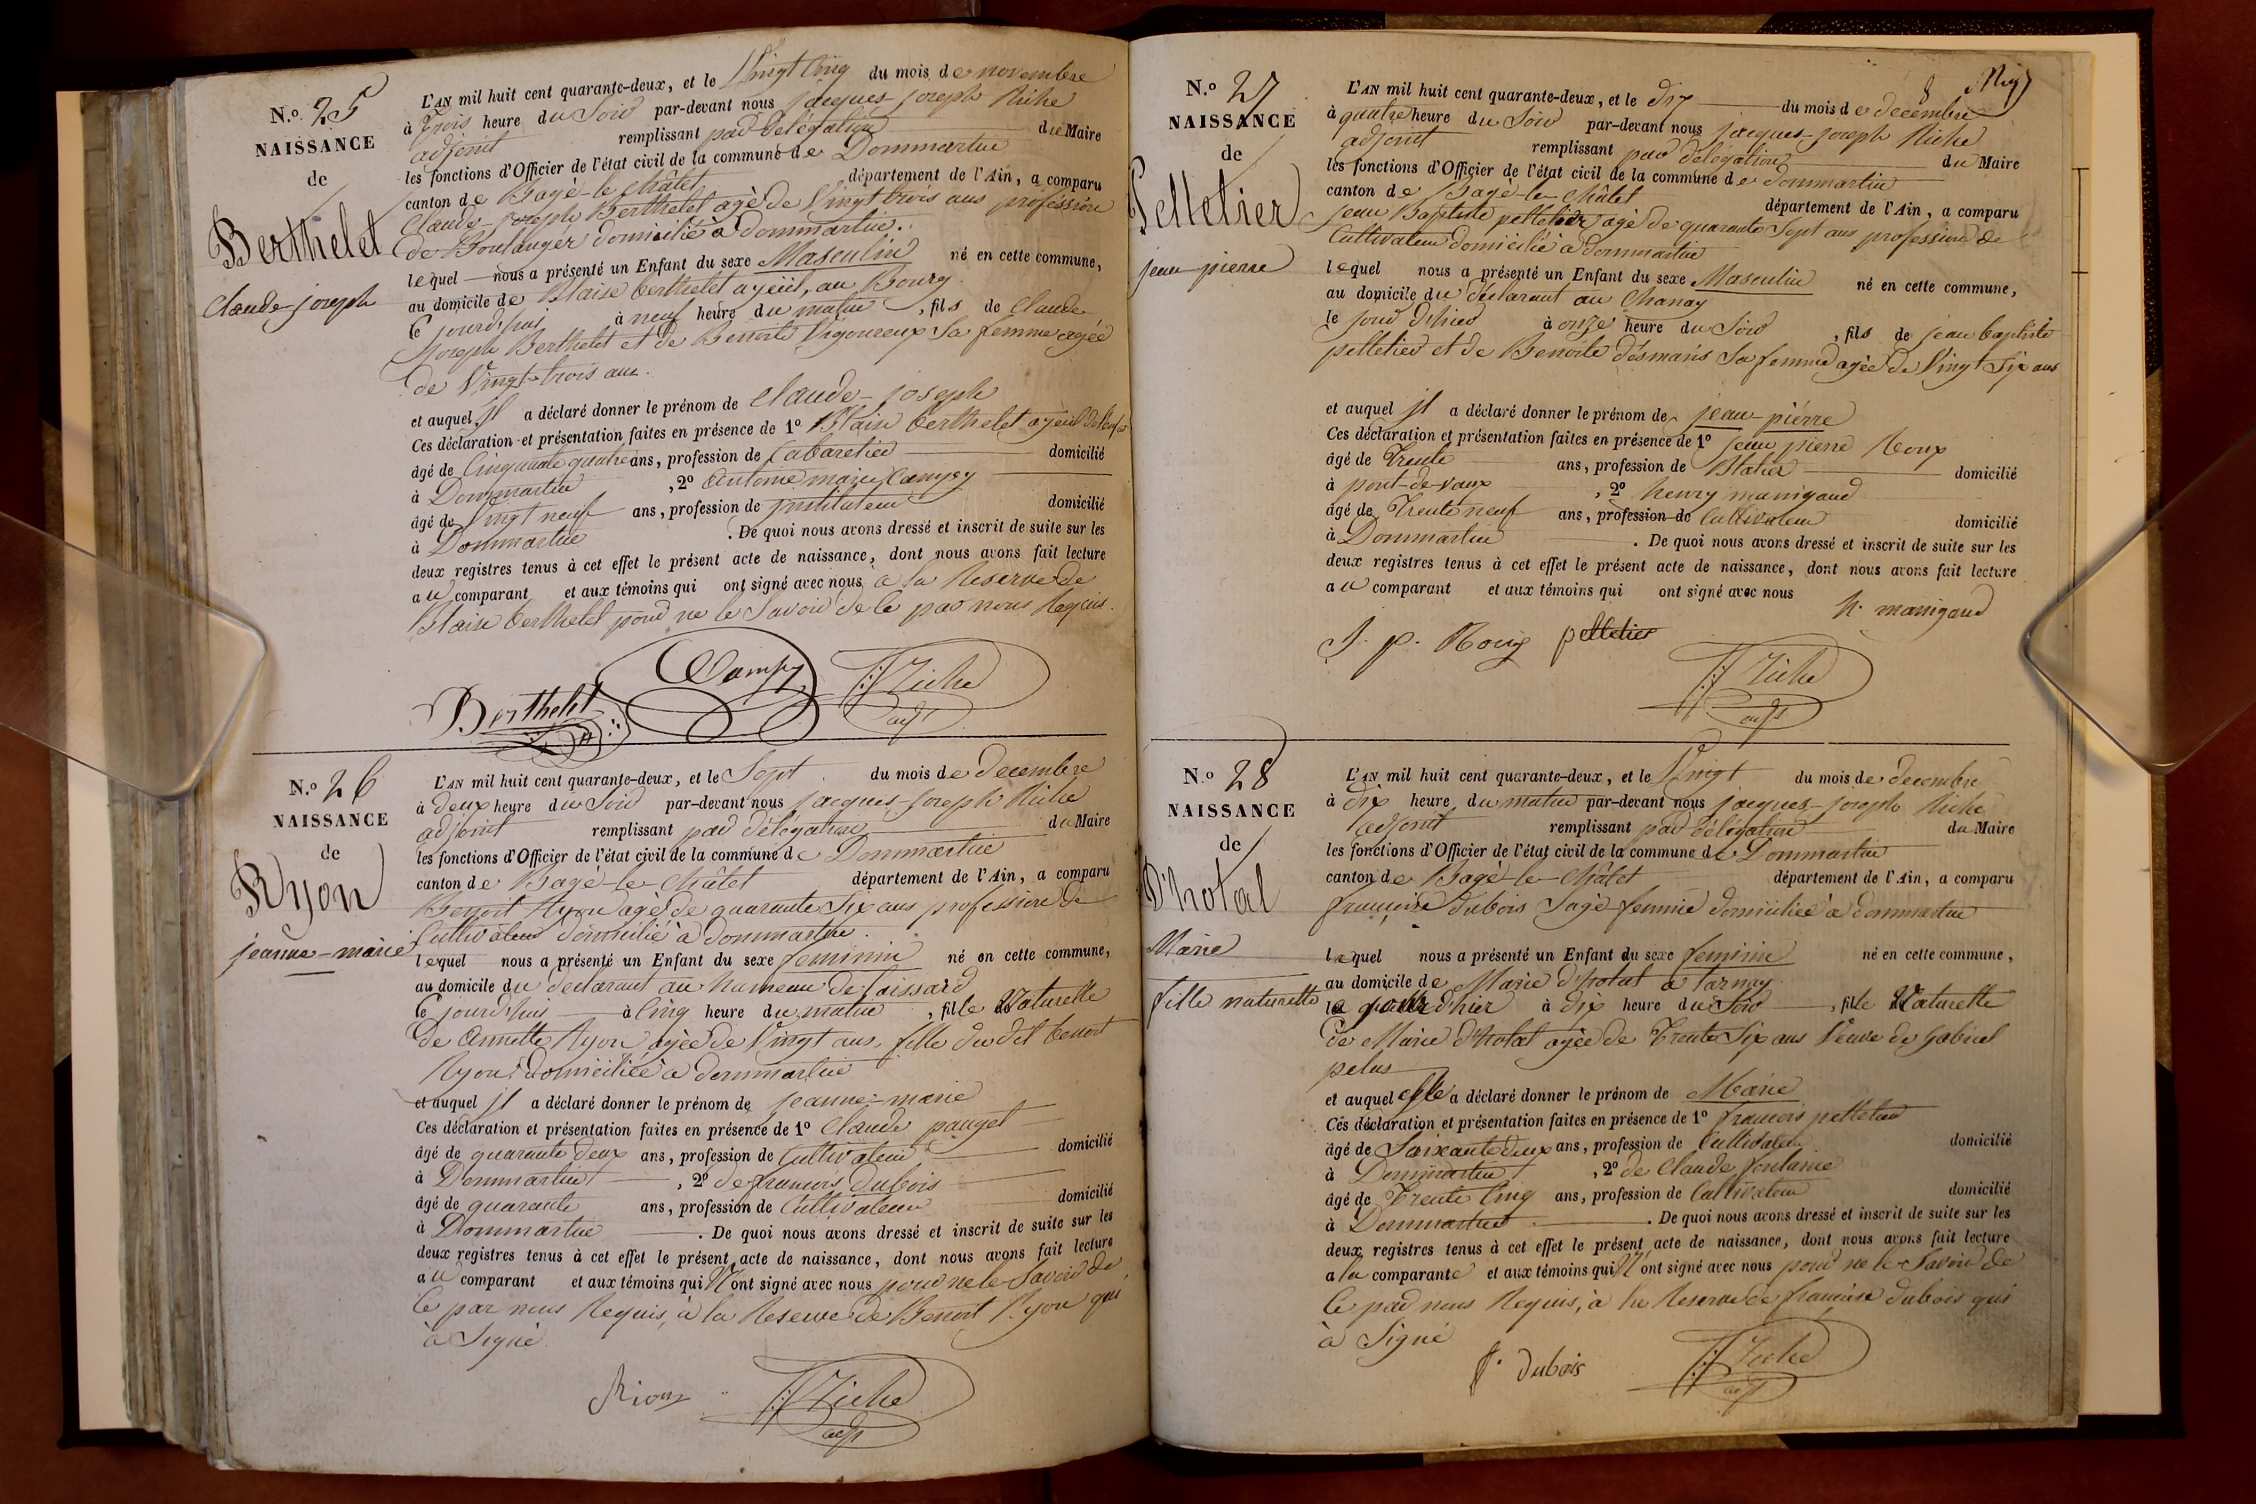 N.o 25
NAISSANCE
de
Berthelet
Claude-joseph
L'AN mil huit cent quarante-deux, et le Vingt Cinq du mois de novembre
à Trois heure du Soir par-devant nous jacques-joseph Riche
adjoint remplissant par délégation du Maire
les fonctions d'Officier de l'état civil de la commune de Dommartin
canton de Bagé-le-Châtel département de l'Ain, a comparu
Claude-joseph Berthelet agé de Vingt trois ans profession
de Boulanger domicilié à dommartin.
lequel nous a présenté un Enfant du sexe Masculin né en cette commune,
au domicile de Blaise berthelet ayeul, au Bourg
Ce jourd'hui à neuf heure du matin, fils de Claude
joseph Berthelet et de Benoite Vigoureux Sa femme agée
de Vingt-trois ans.
et auquel jl a déclaré donner le prénom de Claude-joseph
Ces déclaration et présentation faites en présence de 1o Blaise berthelet ayeul
âgé de Cinquante quatre ans, profession de Cabaretier domicilié
à Dommartin, 2o antoine marie Campy
âgé de Vingt neuf ans, profession de jnstituteur domicilié
à Dommartin. De quoi nous avons dressé et inscrit de suite sur les
deux registres tenus à cet effet le présent acte de naissance, dont nous avons fait lecture
au comparant et aux témoins qui ont signé avec nous a la Reserve de
Blaise berthelet pour ne le Savoir de ce par nous Requis.
Campy Riche
Berthelet adjt
N.o 26
NAISSANCE
de
Ryon
jeanne-marie
L'AN mil huit cent quarante-deux, et le Sept du mois de decembre
à deux heure du Soir par-devant nous jacques-joseph Riche
adjoint remplissant par délégation du Maire
les fonctions d'Officier de l'état civil de la commune de Dommartin
canton de Bagé-le-Châtel département de l'Ain, a comparu
Benoit Ryon agé de quarante Six ans profession de
Cultivateur domicilié à dommartin.
lequel nous a présenté un Enfant du sexe feminin né en cette commune,
au domicile du déclarant au hameau de
Ce jourd'hui à Cinq heure du matin, fille Naturelle
de Annette Ryon agée de Vingt ans, fille du dit benoit
Ryon domiciliée à dommartin
et auquel jl a déclaré donner le prénom de jeanne-marie
Ces déclaration et présentation faites en présence de 1o Claude pauget
âgé de quarante deux ans, profession de Cultivateur domicilié
à Dommartin, 2o de francois dubois
âgé de quarante ans, profession de Cultivateur domicilié
à Dommartin. De quoi nous avons dressé et inscrit de suite sur les
deux registres tenus à cet effet le présent acte de naissance, dont nous avons fait lecture
au comparant et aux témoins qui N'ont signé avec nous pour ne le Savoir de
Ce par nous Requis, à la Reserve de Benoit Ryon qui
à Signé
Rion Riche
adjt
N.o 27
NAISSANCE
de
Pelletier
jean-pierre
L'AN mil huit cent quarante-deux, et le dix du mois de decembre
à quatre heure du Soir par-devant nous jacques-joseph Riche
adjoint remplissant par délégation du Maire
les fonctions d'Officier de l'état civil de la commune de dommartin
canton de Bagé-le-Châtel département de l'Ain, a comparu
jean Baptiste pelletier agé de quarante Sept ans profession de
Cultivateur domicilié à dommartin
lequel nous a présenté un Enfant du sexe Masculin né en cette commune,
au domicile du déclarant au Chanay
le jour d'hier à onze heure du Soir, fils de jean baptiste
pelletier et de Benoite désmaris Sa femme agée de Vingt Six ans
et auquel jl a déclaré donner le prénom de jean-piérre
Ces déclaration et présentation faites en présence de 1o jean pierre Roux
âgé de Trente ans, profession de Blatier domicilié
à pont-de-vaux, 2o henry manigaud
âgé de Trente neuf ans, profession de Cultivateur domicilié
à Dommartin. De quoi nous avons dressé et inscrit de suite sur les
deux registres tenus à cet effet le présent acte de naissance, dont nous avons fait lecture
au comparant et aux témoins qui ont signé avec nous
h. manigaud
J. p. Roux pelletier
Riche
adjt
N.o 28
NAISSANCE
de
D'hotal
Marie
fille naturelle
L'AN mil huit cent quarante-deux, et le Vingt du mois de decembre
à dix heure du matin par-devant nous jacques-joseph Riche
adjoint remplissant par délégation du Maire
les fonctions d'Officier de l'état civil de la commune de Dommartin
canton de Bagé-le-Châtel département de l'Ain, a comparu
françoise dubois Sage-femme domiciliée à dommartin
laquel nous a présenté un Enfant du sexe feminin né en cette commune,
au domicile de Marie d'hotal à tarnay
le jour d'hier à dix heure du Soir, fille Naturelle
de Marie d'hotal agée de Trente Six ans Veuve de Gabriel
pelus
et auquel elle a déclaré donner le prénom de Marie
Ces déclaration et présentation faites en présence de 1o francois pelletier
âgé de Soixante deux ans, profession de Cultivateur domicilié
à Dommartin, 2o de Claude fontaine
âgé de Trente Cinq ans, profession de Cultivateur domicilié
à Dommartin. De quoi nous avons dressé et inscrit de suite sur les
deux registres tenus à cet effet le présent acte de naissance, dont nous avons fait lecture
a la comparante et aux témoins qui N'ont signé avec nous pour ne le Savoir de
Ce par nous Requis, à la Reserve de francoise dubois qui
à Signé
f. dubois Riche
adjt